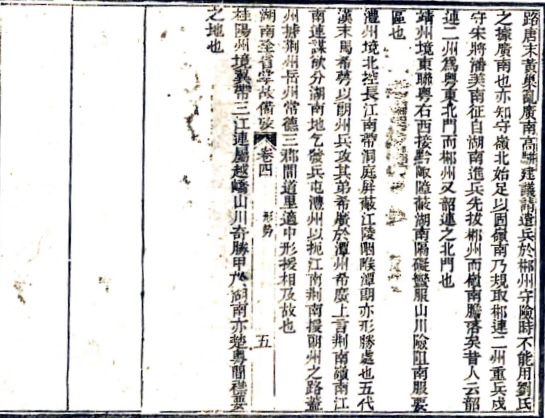 路唐末黃巢亂廣南高駢建議請遣兵於郴州守險時不能用劉氏
之據廣南也亦知守嶺北始足以固嶺南乃規取郴連二州重兵戍
守宋將潘美南征自湖南進兵先拔郴州而嶺南膽落矣昔人云韶
連二州爲粵東北門而郴州又韶連之北門也
靖州境東聯粵右西接黔陬障蔽湖南隔礙蠻服山川險阻南服要
區也
澧州境北控長江南帶洞庭屏蔽江陵咽喉潭朗亦形勝處也五代
漢末馬希萼以朗州兵攻其弟希廣於潭州希廣上言荊南嶺南江
南連謀欲分湖南地乞發兵屯澧州以扼江南荊南援朗州之路蓋
州據荊州岳州常德三郡間道里適中形援相及故也
湖南全省掌故備攷
卷四
形勢
五
桂陽州境襟帶三江連屬越嶠山川奇勝甲於湖南亦楚粵間襟要
之地也